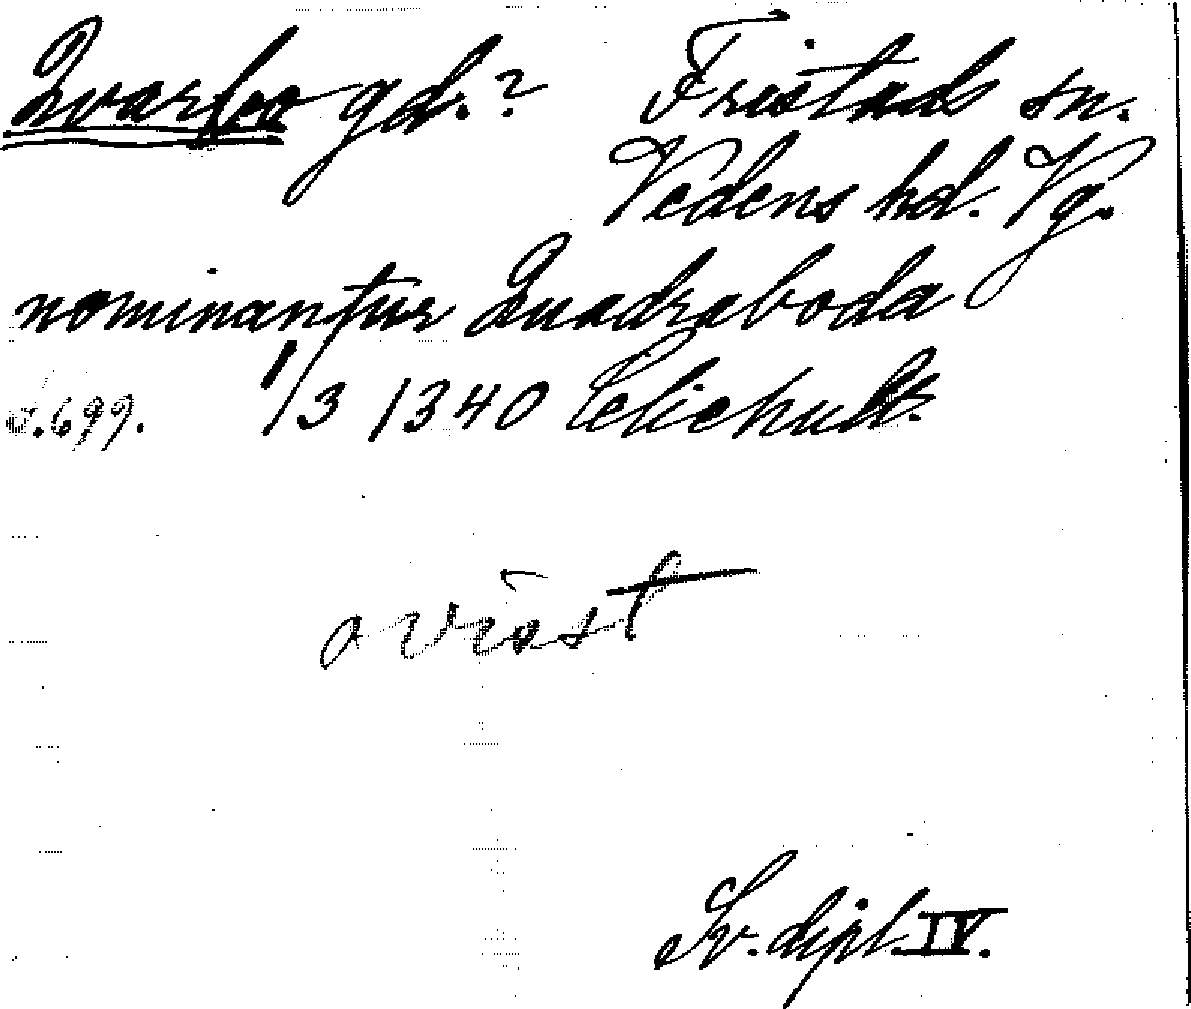 Qvarbo gd.? Fristads sn.
Vedens hd. Vg.
nominantur Quadraboda
s. 699. 1/3 1340 Celichult.
ovisst
Sv. dipl. IV.